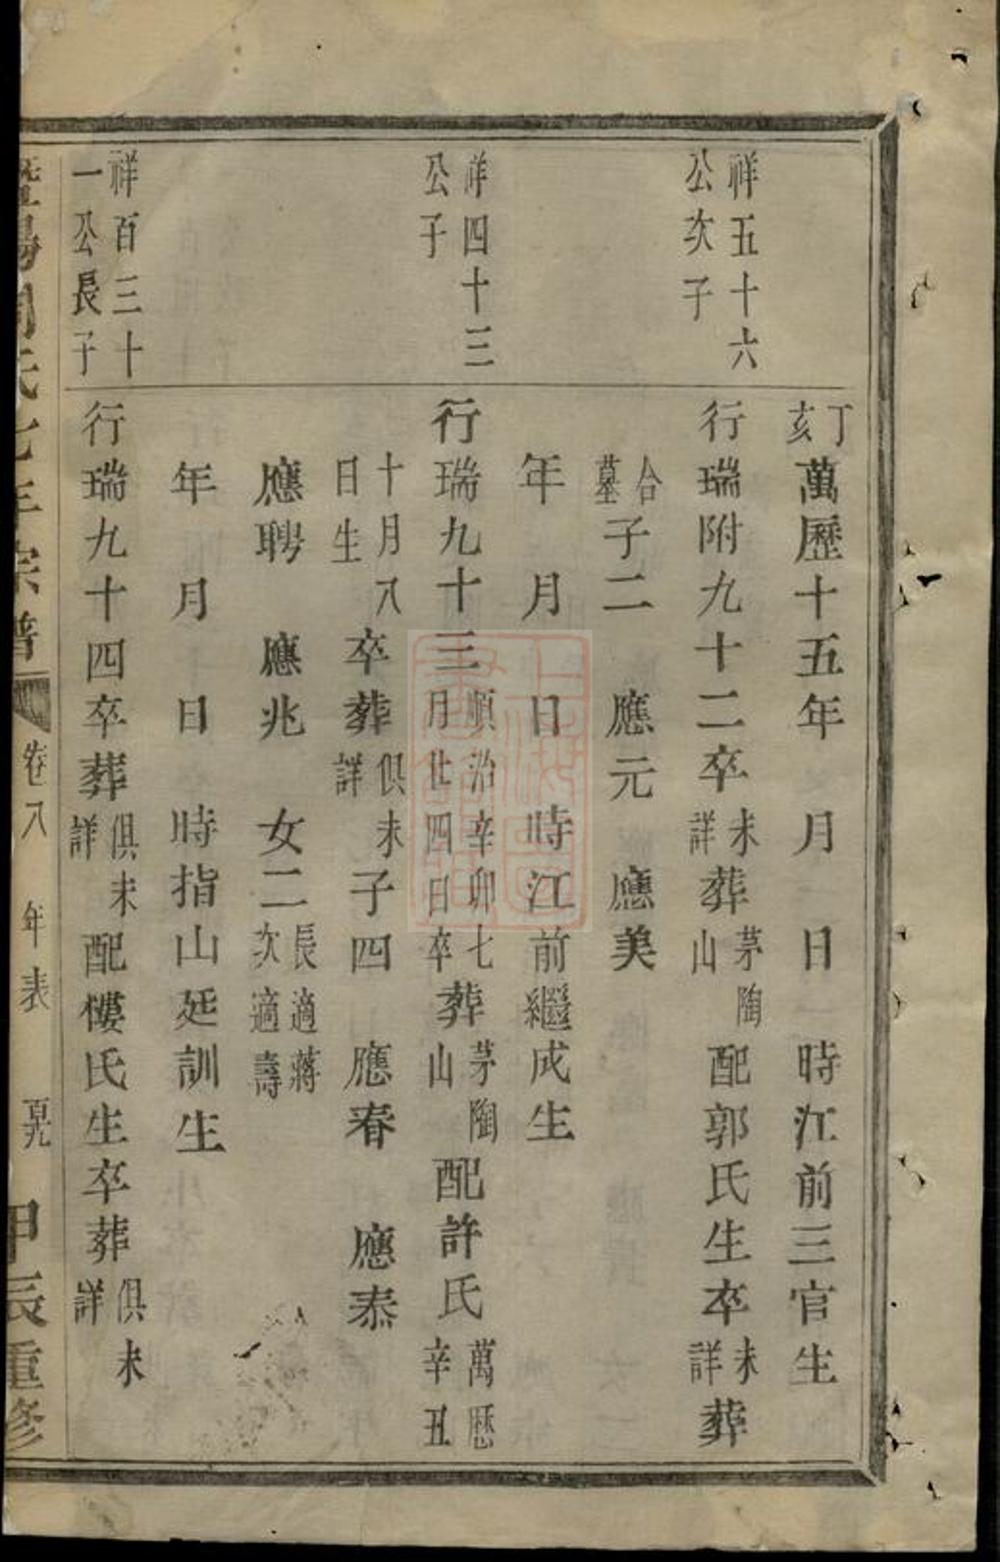 丁亥萬歷十五年　月　日　時江前三官生
祥五十六公次子
行瑞附九十二卒未詳葬茅陶山　配郭氏生卒未詳葬
合墓子二　應元　應美
年　月　日　時江前繼成生
祥四十三公子
行瑞九十三順治辛卯七月廿四日卒葬茅陶山　配許氏萬歷辛丑
十月八日生卒葬俱未詳子四　應春　應泰
應聘　應兆　女二長適蔣次適壽
年　月　日　時指山廷訓生
祥百三十一公長子
行瑞九十四卒葬俱未詳配樓氏生卒葬俱未詳
暨陽周氏七年宗譜　卷八　年表　甲辰重修